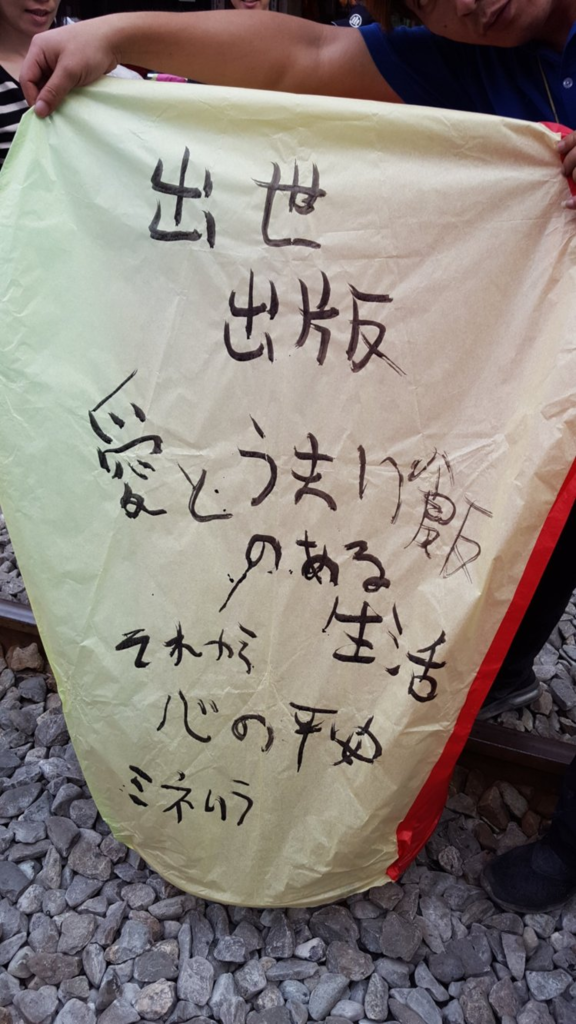 出世
出版
愛とうまい飯
のある
生活
それから
心の平ぬ
ミネハラ